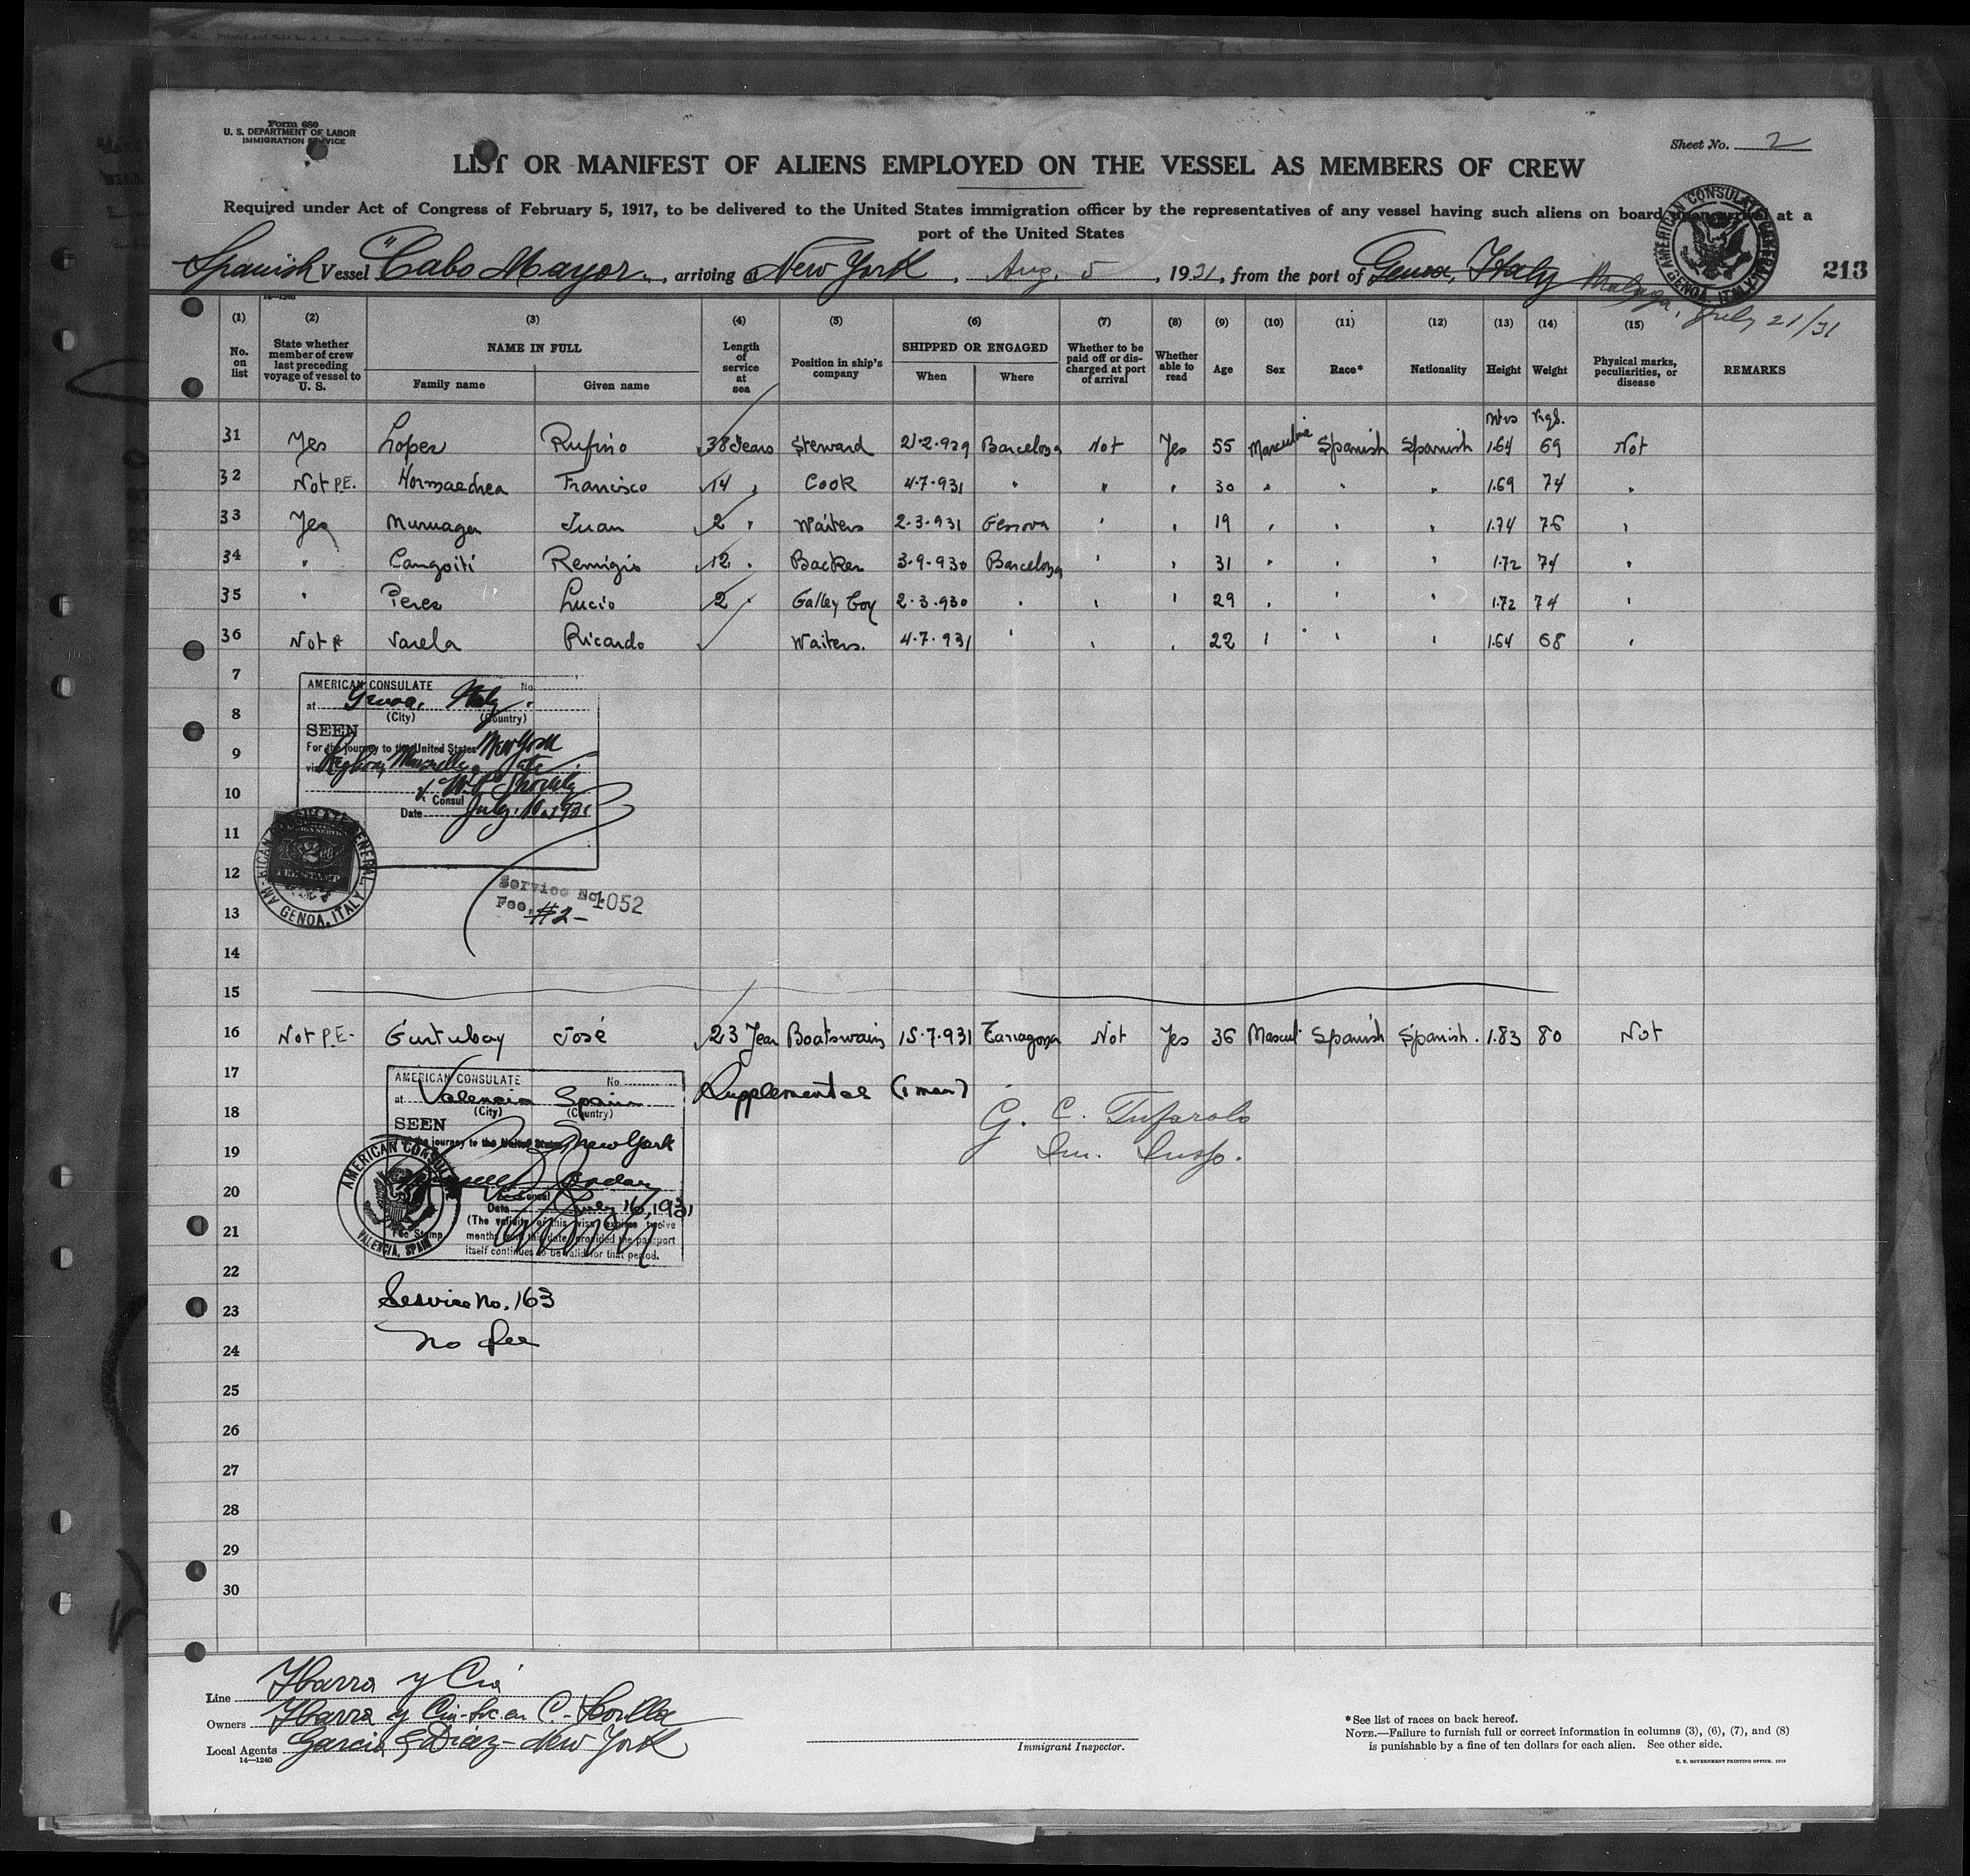 Form 680
U. S. DEPARTMENT OF LABOR
IMMIGRATION SERVICE
Sheet No. 2
LIST OR MANIFEST OF ALIENS EMPLOYED ON THE VESSEL AS MEMBERS OF CREW
Required under Act of Congress of February 5, 1917, to be delivered to the United States immigration officer by the representatives of any vessel having such aliens on board upon arrival at a
port of the United States
Spanish Vessel "Cabo Mayor", arriving at New York, Aug. 5, 1931, from the port of Genoa, Italy
Malaga, July 21/31
213
AMERICAN CONSULATE GENERAL GENOA, ITALY
14-1240
(1) (2) (3) (4) (5) (6) (7) (8) (9) (10) (11) (12) (13) (14) (15)
No. on list
State whether member of crew last preceding voyage of vessel to U. S.
NAME IN FULL
Family name
Given name
Length of service at sea
Position in ship's company
SHIPPED OR ENGAGED
When
Where
Whether to be paid off or discharged at port of arrival
Whether able to read
Age
Sex
Race*
Nationality
Height
Weight
Physical marks, peculiarities, or disease
REMARKS
Mts Kgs.
31 Yes Lopez Rufino 38 Years Steward 21-2-929 Barcelona Not Yes 55 Masculine Spanish Spanish 1.64 69 Not
32 Not P.E. Hormaechea Francisco 14 " Cook 4-7-931 " " " 30 " " " 1.69 74 "
33 Yes Muruaga Juan 2 " Waiters 2-3-931 Genova " " 19 " " " 1.74 76 "
34 " Cangoiti Remigio 12 " Backer 3-9-930 Barcelona " " 31 " " " 1.72 74 "
35 " Perez Lucio 2 " Galley boy 2-3-930 " " " 29 " " " 1.72 74 "
36 Not P. Varela Ricardo Waiters. 4-7-931 " " " 22 " " " 1.64 68 "
7
AMERICAN CONSULATE No.
at Genoa, Italy.
(City) (Country)
8
SEEN
For the journey to the United States New York
9
via Leghorn, Marseille
10
Consul
Date July 10, 1931
11
12
AMERICAN CONSULATE GENERAL GENOA, ITALY
Service No. 1052
Fee #2-
13
14
15
16 Not P.E- Gurtubay José 23 Year Boatswain 15-7-931 Tarragona Not Yes 36 Mascul Spanish Spanish. 1.83 80 Not
17
AMERICAN CONSULATE No
at Valencia Spain
(City) (Country)
Supplemental (1 man)
18
SEEN
G. C. Tufarolo
Im. Insp.
For the journey to the United States New York
19
20
Vice Consul
Date July 16, 1931
21
(The validity of this visa expires twelve
months from this date, provided the passport
itself continues to be valid for that period.
Fee Stamp
AMERICAN CONSULATE VALENCIA, SPAIN
22
Service No. 163
23
No fee
24
25
26
27
28
29
30
Line Ybarra y Cia
Owners Ybarra y Cia-Soc. en C.- Sevilla
Local Agents Garcia & Diaz - New York
14-1240
Immigrant Inspector.
*See list of races on back hereof.
NOTE.—Failure to furnish full or correct information in columns (3), (6), (7), and (8)
is punishable by a fine of ten dollars for each alien. See other side.
U. S. GOVERNMENT PRINTING OFFICE: 1929